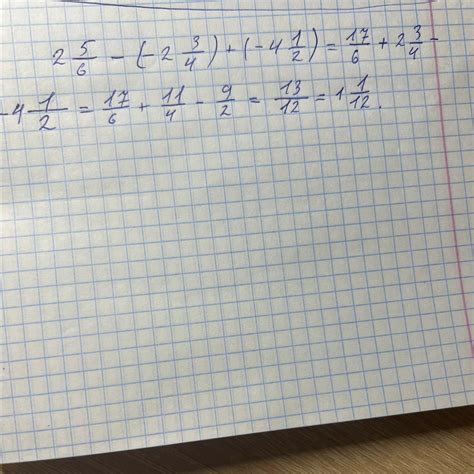 2 5/6 - (-2 3/4) + (-4 1/2) = 17/6 + 2 3/4 -
-4 1/2 = 17/6 + 11/4 - 9/2 = 13/12 = 1 1/12.